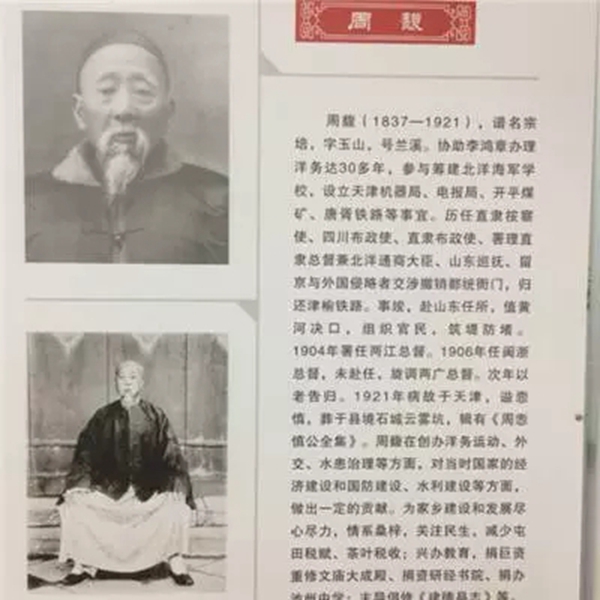 周馥
周馥（1837—1921），谱名宗
培，字玉山，号兰溪。协助李鸿章办理
洋务达30多年，参与筹建北洋海军学
校，设立天津机器局、电报局、开平煤
矿、唐胥铁路等事宜。历任直隶按察
使、四川布政使、直隶布政使、署理直
隶总督兼北洋通商大臣、山东巡抚、留
京与外国侵略者交涉撤销都统衙门，归
还津榆铁路。事竣，赴山东任所，值黄
河决口，组织官民，筑堤防堵。
1904年署任两江总督。1906年任闽浙
总督，未赴任，旋调两广总督。次年以
老告归。1921年病故于天津，谥悫
慎，葬于县境石城云雾坑，辑有《周悫
慎公全集》。周馥在创办洋务运动、外
交、水患治理等方面，对当时国家的经
济建设和国防建设、水利建设等方面，
做出一定的贡献。为家乡建设和发展尽
心尽力，情系桑梓，关注民生，减少屯
田税赋、茶叶税收；兴办教育，捐巨资
重修文庙大成殿、捐资研经书院、捐办
池州中学；主尋倡修《建德县志》等。